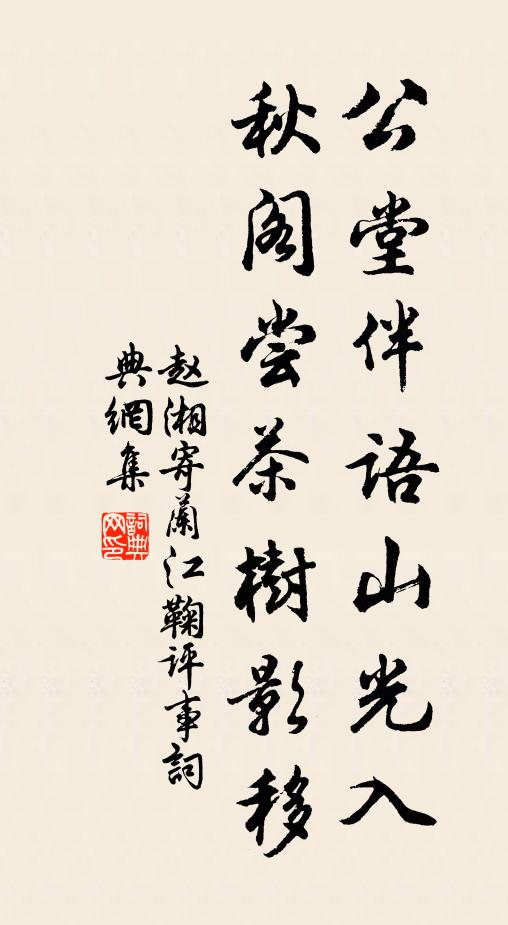 公堂伴语山光入
秋阁尝茶樹影移
赵湘寄蘭江鞠评事詞
典網集
詞典
网印